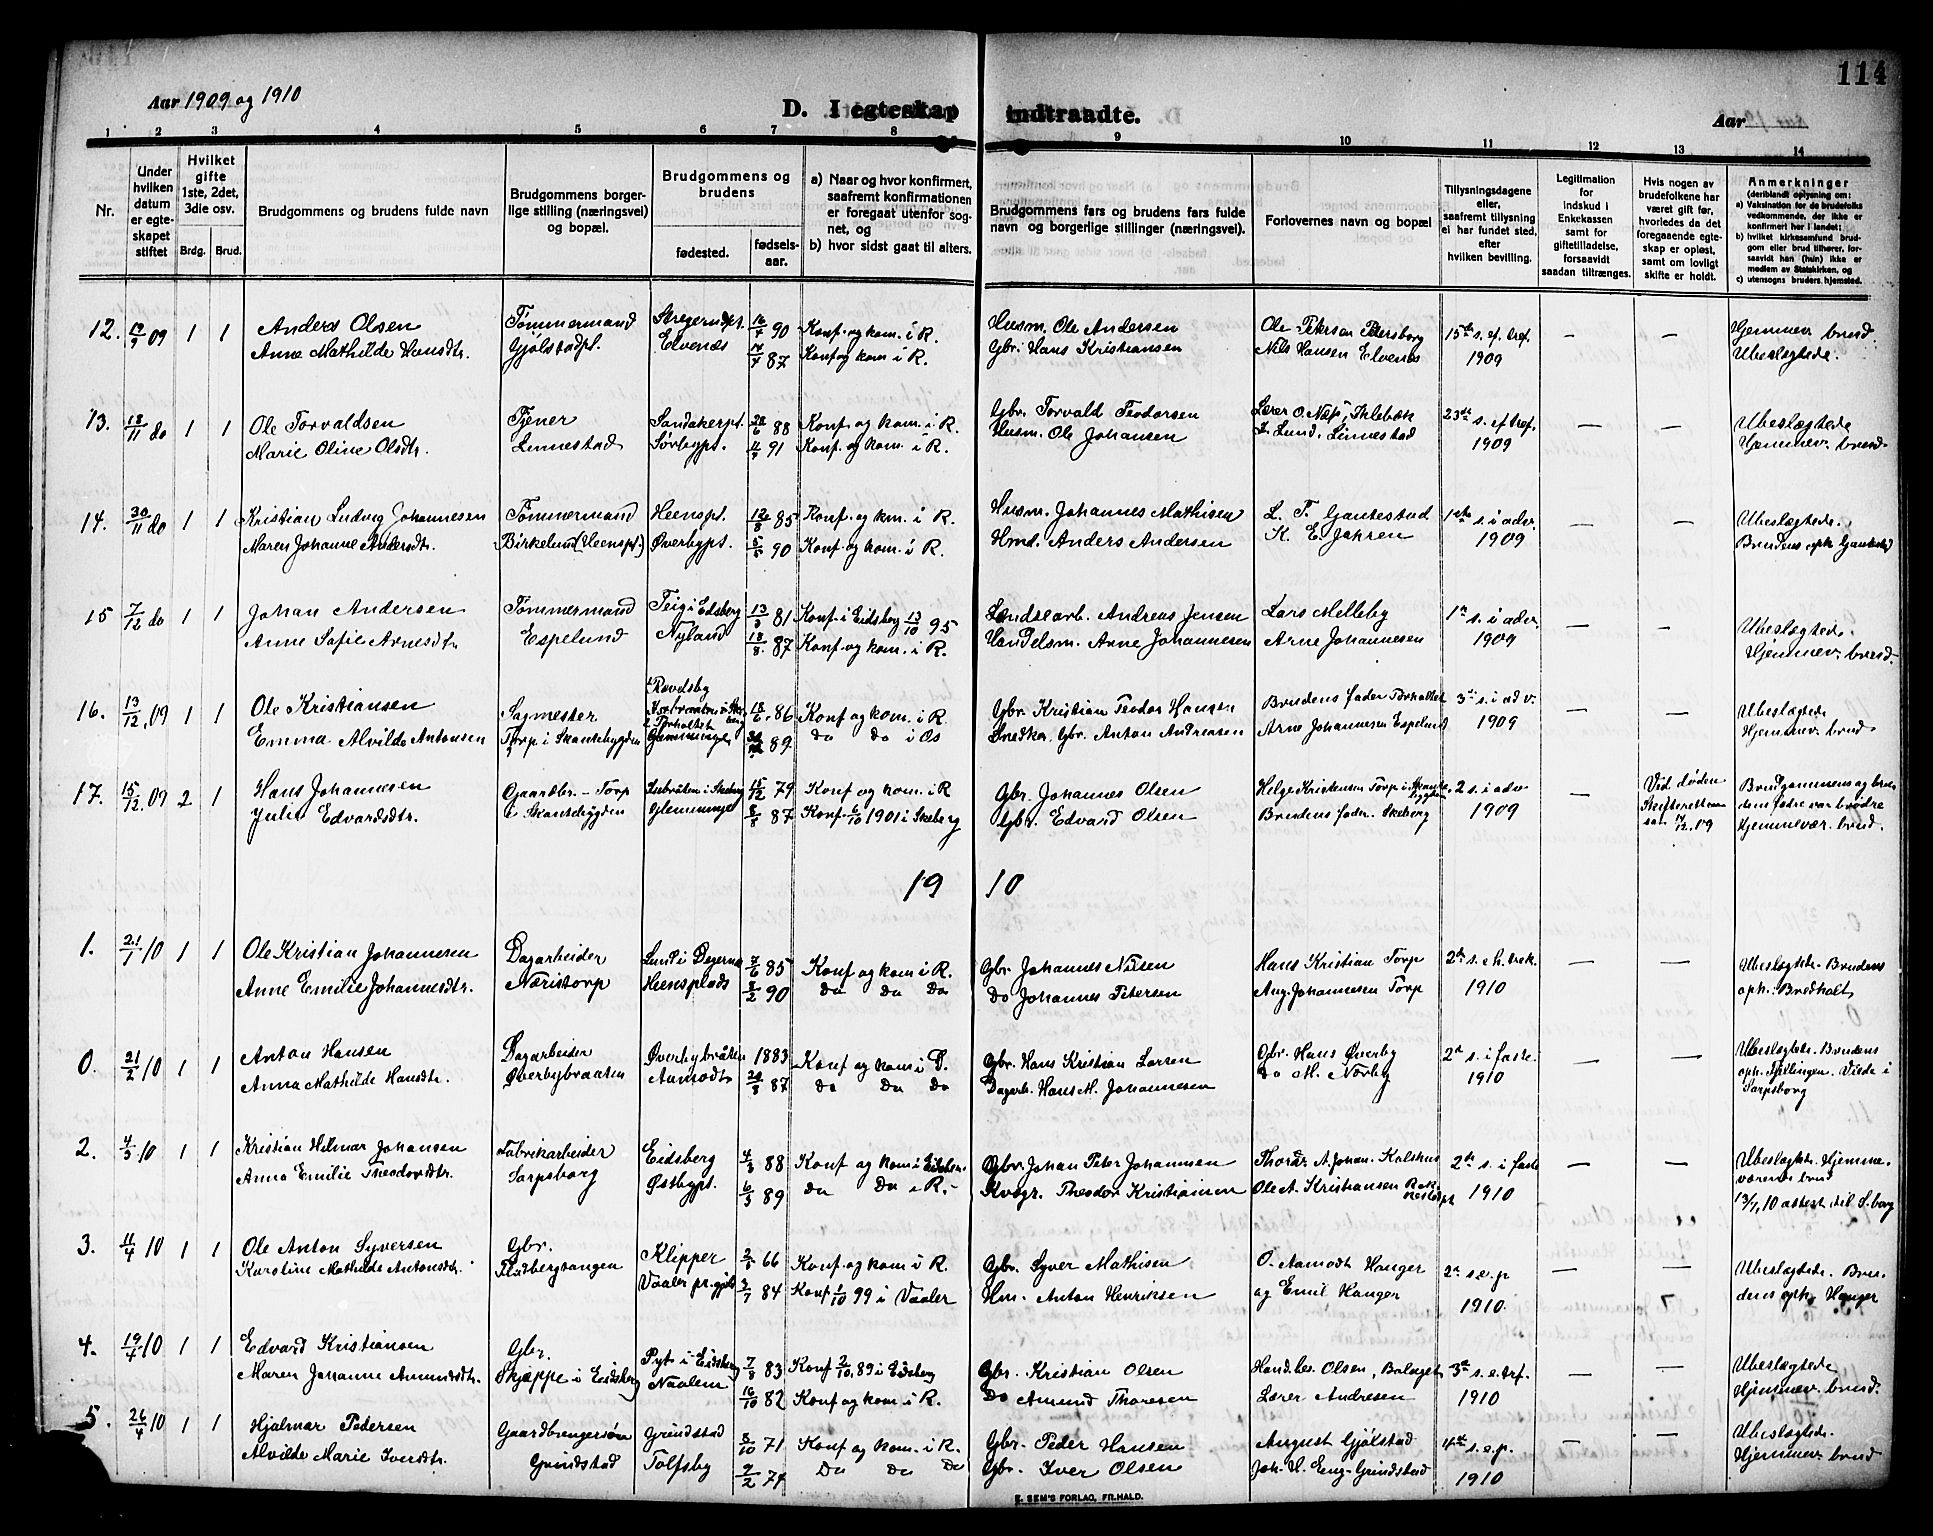 114
Aar 1909 og 1910
D. I egteskap indtraadte.
Aar
1 2 3 4 5 6 7 8 9 10 11 12 13 14
Nr.
Under hvilken datum er egteskapet stiftet
Hvilket gifte 1ste, 2det, 3die osv.
Brdg. Brud.
Brudgommens og brudens fulde navn
Brudgommens borgerlige stilling (næringsvei) og bopæl.
Brudgommens og brudens
fødested.
fødselsaar.
a) Naar og hvor konfirmert, saafremt konfirmationen er foregaat utenfor sognet, og
b) hvor sidst gaat til alters.
Brudgommens fars og brudens fars fulde navn og borgerlige stillinger (næringsvei).
Forlovernes navn og bopæl
Tillysningsdagene eller, saafremt tillysning ei har fundet sted, efter hvilken bevilling.
Legitimation for indskud i Enkekassen samt for giftetilladelse, forsaavidt saadan tiltrænges.
Hvis nogen av brudefolkene har været gift før, hvorledes da det foregaaende egteskap er opløst, samt om lovlig skifte er holdt.
Anmerkninger
(deriblandt oplysning om:
a) Vaksination for de brudefolks vedkommende, der ikke er konfirmert her i landet;
b) hvilket kirkesamfund brudgom eller brud tilhører, forsaavidt han (hun) ikke er medlem av Statskirken, og
c) utensogns bruders hjemsted.
12. 19/9 09 1 1 Anders Olsen Tømmermand 16/4 90 Konf. og kom. i R. Husm. Ole Andersen 15de s. ef. tref. — — Hjemmev. brud
Anne Mathilde Hansdtr. Gjølstadpl. Elvenæs 14/4 87 Konf. og kom. i R. Gbr. Hans Kristiansen Nils Hansen Elvenes 1909 Ubeslægtede.
13. 18/11 do 1 1 Ole Torvaldsen Tjener Sandakerpl. 28/6 88 Konf. og kom. i R. Gbr. Torvald Teodorsen 23de s. ef. tref. — — Ubeslægtede
Marie Oline Olsdtr. Linnestad Sørbypl. 91 Konf. og kom. i R. Husm. Ole Johansen L. Lund, Linnestad 1909 Hjemmev. brud.
14. 30/11 do 1 1 Kristian Ludvig Johannesen Tømmermand Heenspl. 12/8 85 Konf. og kom. i R. Husm. Johannes Mathisen L. T. Gautestad 1ste s. i adv. — — Ubeslægtede.
Maren Johanne Andersdtr. Birkelund (Heenspl.) Øverbypl. 90 Konf. og kom. i R. Hmd. Anders Andersen K. E. Jahren 1909 Brudens oph. Gautestad
15 7/12 do 1 1 Johan Andersen Tømmermand Teig i Eidsberg 13/3 81 Konf. i Eidsberg 13/10 95 Andreas Jensen Lars Melleby 1ste s. i adv. — — Ubeslægtede.
Anne Sofie Arnesdtr. Espelund Nyland 18/8 87 Konf. og kom. i R. Handelsm. Arne Johannesen Arne Johannesen 1909 Hjemmev. brud.
16. 13/12. 09 1 1 Ole Kristiansen Sagmester 18/6. 86 Konf og kom. i R. Gbr. Kristian Teodor Hansen Brudens fader 3de s. i adv. — — Ubeslægtede
Emma Alvilde Antonsen Torp i Skantebygden 89 do do i Os Snedker, Gbr. Anton Andreasen Arne Johannesen Espelund 1909 Hjemmev. brud.
17. 15/12. 09 2 1 Hans Johannesen Gaardbr. – Torp 15/12 79 Konf og kom. i R Gbr. Johannes Olsen Helge Kristensen Torp i 2 s. i adv — Ved døden Brudgommens og brudens fædre var brødre
Julie Edvardsdtr. i Skantebygden Glemminge 8/8 87 Konf. 6/10 1901 i Skeberg Gbr. Edvard Olsen Brudens fader. Skeberg 1909 Hjemmevær. brud.
19 10
1. 21/1 10 1 1 Ole Kristian Johannesen Dagarbeider Lund i Degernæs 7/6 85 Konf og kom i R. Gbr. Johannes Nilsen Hans Kristian Torp 2de s. e. h. trek. — — Ubeslægtede. Brudens
Anne Emilie Johannesdtr. Næristorp Heensplads 8/2 90 Do Do Do Do Johannes Petersen Aug. Johannesen Torp 1910 oph.: Bredholt
0. 21/2 10 1 1 Anton Hansen Dagarbeider Øverbybråten 1883 Konf og kom i D. Gbr. Hans Kristian Larsen Gbr. Hans Øverby 2de s. i faste. — — Ubeslægtede. Brudens
Anna Mathilde Hansdtr. Øverbybraaten Aamodt 20/8 87 Do Do Do Dagarb. Hans M. Johannesen do M. Nørby 1910 oph. Spillingen. Viede i Sarpsborg
2. 4/3 10 1 1 Kristian Hilmar Johansen Fabrikarbeider Eidsberg 4/3 88 Konf og kom i Eidsber. Gbr. Johan Peter Johannesen 2de s. i faste — — Ubeslægtede. Hjemmeværende brud
Anna Emilie Theodorsdtr. Sarpsborg Østbypl. 6/3 89 Do Do i R. Theodor Kristiansen Ole A. Kristiansen 1910 13/7. 10 attest til S.borg
3. 11/4 10 1 1 Ole Anton Syversen Gbr. Klipper 66 Konf. og kom i R. Gbr. Syver Mathisen O. Aamodt Hanger 2de s. e. p — — Ubeslægtede. Brudens oph. Hanger
Karoline Mathilde Antonsdtr. Vaaler pr.gjeld 3/7 84 Konf 1/10 99 i Vaaler Hm. Anton Henriksen og Emil Hanger 1910.
4. 19/4 10 1 1 Edvard Kristiansen Gbr. Pyt i Eidsberg 7/8 83 Konf 2/10. 89 i Eidsberg Gbr. Kristian Olsen Hand.be. Olsen, 3de s. e. trf. — — Ubeslægtede
Maren Johanne Amundsdtr. Skjæppe i Eidsberg Naalem 16/10 82 Konf og kom i R. Do Amund Thoresen Lærer Andresen 1910 Hjemmev. brud.
5. 26/4 10 1 1 Hjalmar Pedersen Gaardbrugersøn Grindstad 8/10 71 Konf og kom. i R. Gbr. Peder Hansen August Gjølstad 4de s. e. p. — — Ubeslægtede.
Alvilde Marie Iversdtr. Grindstad Tolfsby 9/2 74 Do Do Do Gbr. Iver Olsen Joh. H. Eng-Grindstad 1910 Hjemmev. brud
E. SEM'S FORLAG, FR.HALD.